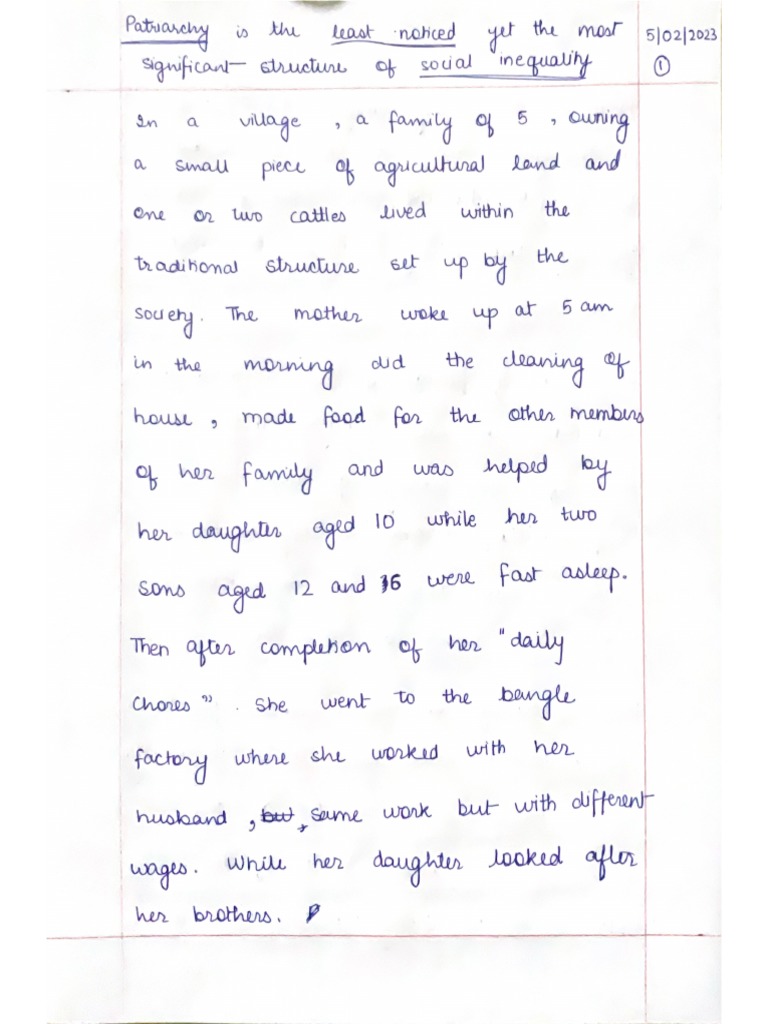 Patriarchy is the least noticed yet the most
5/02/2023
significant structure of social inequality
1
In a village, a family of 5, owning
a small piece of agricultural land and
one or two cattles lived within the
traditional structure set up by the
society. The mother woke up at 5 am
in the morning did the cleaning of
house, made food for the other members
of her family and was helped by
her daughter aged 10 while her two
sons aged 12 and 16 were fast asleep.
Then after completion of her "daily
chores". She went to the bangle
factory where she worked with her
husband, but, same work but with different
wages. While her daughter looked after
her brothers.